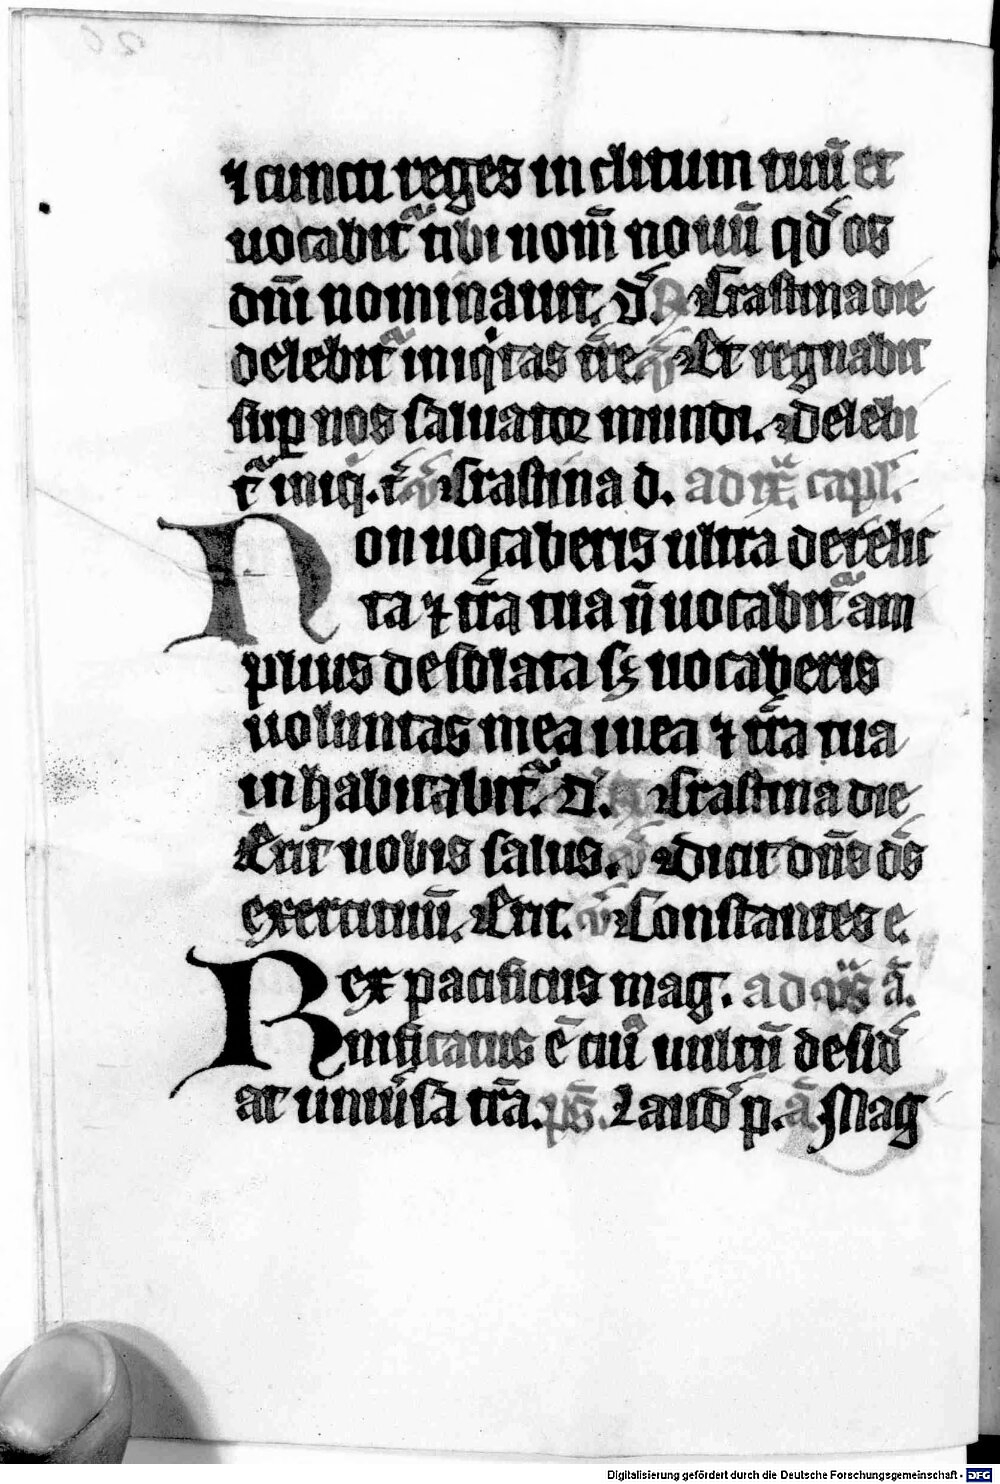 ⁊ cuncti reges inclitum tuū et
uocabit᷑ tibi nom̄ nouū qd̓ os
dm̄ nominauit. D. R Crastina die
delebit᷑ iniq̇tas tr̄e ℣ Et regnabit
sup̱ nos saluator mundi. delebi
t᷑ iniq̇. t̄. ℣ Crastina d. ad ixᷓ. capl̓.
Non uocaberis ultra derelic
ta ⁊ tr̄a tua n̄ uocabit᷑ am
plius desolata sꝫ uocaberis
uoluntas mea in ea ⁊ tr̄a tua
inhabitabit᷑. D. R Crastina die
Erit uobis salus. ℣ Dicit dn̄s ds̄
exercituū. Erit. ℣ Constantes e.
Rex pacificus mag. ad vs̄ ā.
nificatus ē cui᷒ uultū desid̓
at uniu̓sa tr̄a. ps̄. Laud̓ p. ā. Mag
Digitalisierung gefördert durch die Deutsche Forschungsgemeinschaft - DFG